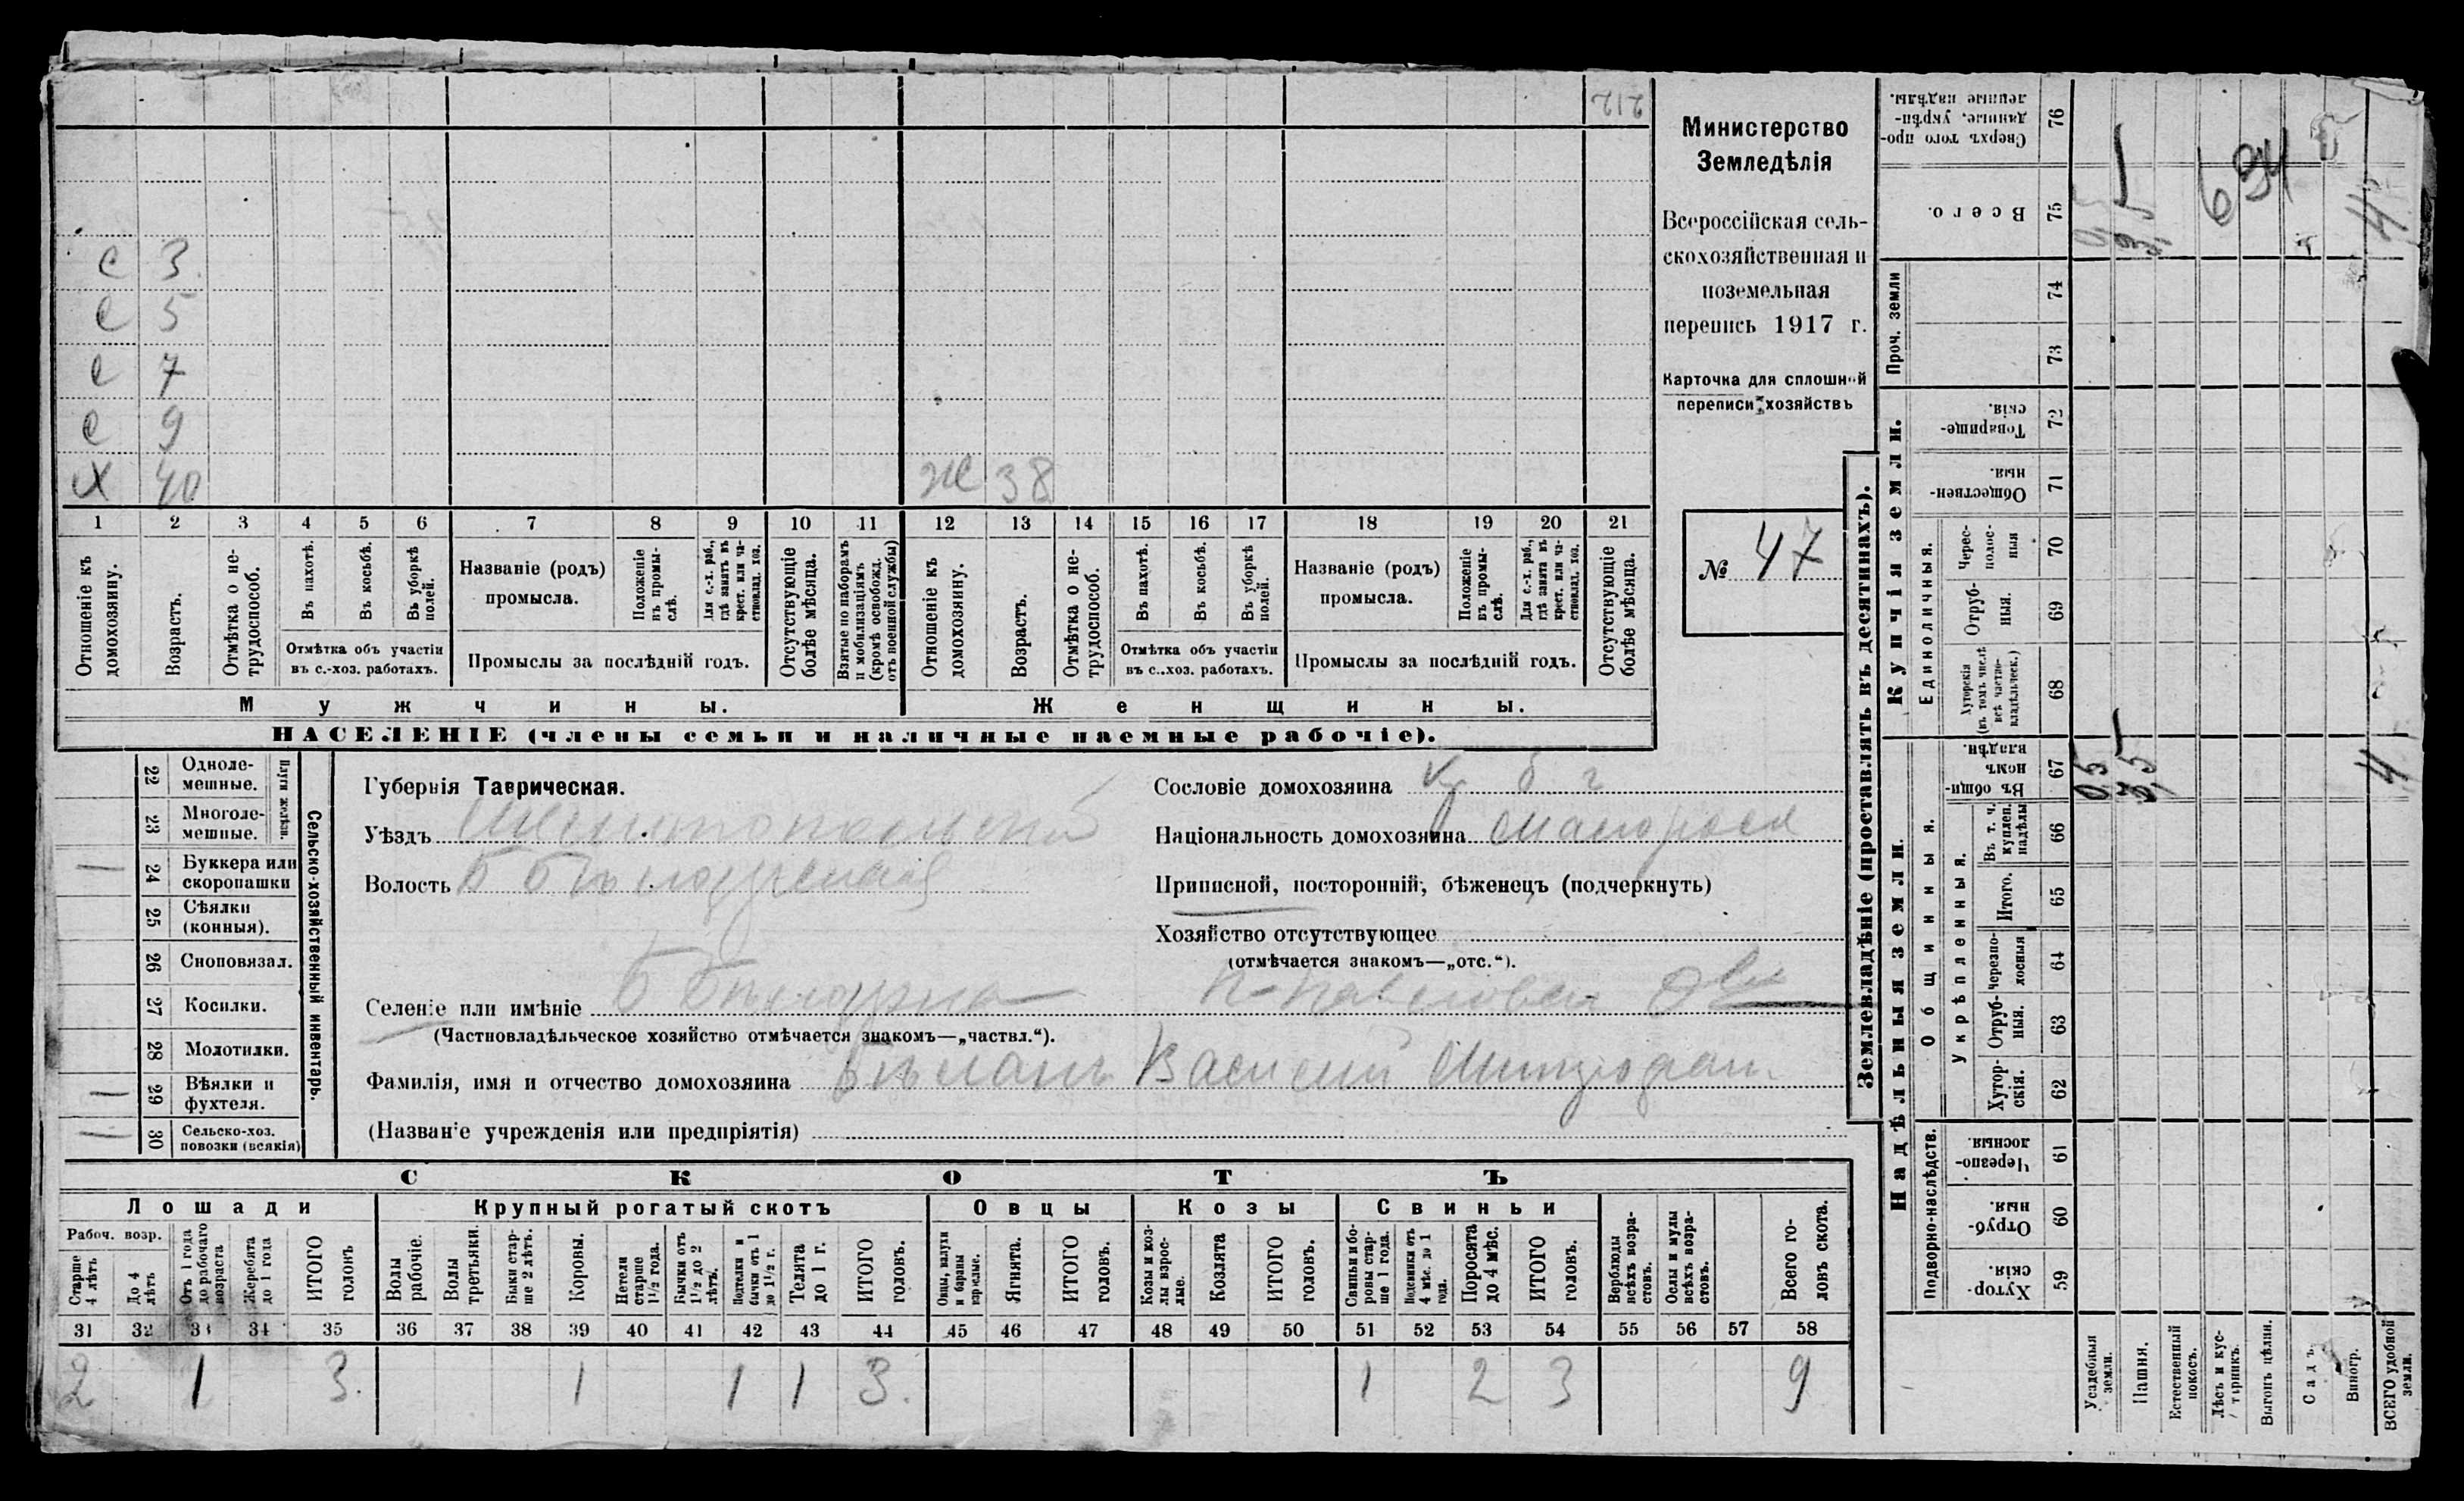 212
с 3
с 5
с 7
с 9
х 40 ж 38
1 2 3 4 5 6 7 8 9 10 11 12 13 14 15 16 17 18 19 20 21
Отношеніе къ домохозяину.
Возрастъ.
Отмѣтка о нетрудоспособ.
Въ пахотѣ.
Въ косьбѣ.
Въ уборкѣ полей.
Отмѣтка объ участіи
въ с.-хоз. работахъ.
Названіе (родъ)
промысла.
Положеніе въ промыслѣ.
Для с.-х. раб., гдѣ занятъ въ крест. или частновлад. хоз.
Промыслы за послѣдній годъ.
Отсутствующіе болѣе мѣсяца.
Взятые по наборамъ и мобилизаціямъ (кромѣ освобожд. отъ военной службы)
Отношеніе къ домохозяину.
Возрастъ.
Отмѣтка о нетрудоспособ.
Въ пахотѣ.
Въ косьбѣ.
Въ уборкѣ полей.
Отмѣтка объ участіи
въ с.-хоз. работахъ.
Названіе (родъ)
промысла.
Положеніе въ промыслѣ.
Для с.-х. раб., гдѣ занята въ крест. или частновлад. хоз.
Промыслы за послѣдній годъ.
Отсутствующіе болѣе мѣсяца.
Мужчины. Женщины.
НАСЕЛЕНІЕ (члены семьи и наличные наемные рабочіе).
Министерство
Земледѣлія
Всероссійская сель-
скохозяйственная и
поземельная
перепись 1917 г.
Карточка для сплошной
переписи хозяйствъ
№ 47
22 Однолемешные.
23 Многолемешные.
Плуги желѣзн.
24 Буккера или скоропашки
25 Сѣялки (конныя).
26 Сноповязал.
27 Косилки.
28 Молотилки.
29 Вѣялки и фухтеля.
30 Сельско-хоз. повозки (всякія)
Сельско-хозяйственный инвентарь.
Губернія Таврическая.
Уѣздъ
Волость Б Бѣлозерская
Селеніе или имѣніе Б Бѣлозерка
(Частновладѣльческое хозяйство отмѣчается знакомъ—„частвл.“).
Фамилія, имя и отчество домохозяина Бѣланъ Василий
(Названіе учрежденія или предпріятія)
Сословіе домохозяина
Національность домохозяина малоросъ
Приписной, посторонній, бѣженецъ (подчеркнуть)
Хозяйство отсутствующее
(отмѣчается знакомъ—„отс.“).
СКОТЪ
Лошади Крупный рогатый скотъ Овцы Козы Свиньи
Рабоч. возр.
Старше 4 лѣтъ
До 4 лѣтъ
Отъ 1 года до рабочаго возраста
Жеребята до 1 года
ИТОГО головъ
Волы рабочіе.
Волы третьяки.
Быки старше 2 лѣтъ.
Коровы.
Нетели старше 1½ года.
Бычки отъ 1½ до 2 лѣтъ.
Подтелки и бычки отъ 1 до 1½ г.
Телята до 1 г.
ИТОГО головъ.
Овцы, валухи и бараны взрослые.
Ягнята.
ИТОГО головъ.
Козы и козлы взрослые.
Козлята
ИТОГО головъ.
Свиньи и боровы старше 1 года.
Подсвинки отъ 4 мѣс. до 1 года.
Поросята до 4 мѣс.
ИТОГО головъ.
Верблюды всѣхъ возрастовъ.
Ослы и мулы всѣхъ возрастовъ.
Всего головъ скота.
31 32 33 34 35 36 37 38 39 40 41 42 43 44 45 46 47 48 49 50 51 52 53 54 55 56 57 58
2 1 3. 1 1 1 3. 1 2 3 9
Землевладѣніе (проставлять въ десятинахъ).
Надѣльныя земли.
Купчія земли.
Проч. земли
Подворно-наслѣдств.
Общинныя.
Укрѣпленныя.
Единоличныя.
59 Хуторскія.
60 Отрубныя.
61 Черезполосныя.
62 Хуторскія.
63 Отрубныя.
64 черезполосныя
65 Итого.
66 Въ т. ч. куплен. надѣлы
67 Въ общиномъ владѣн.
68 Хуторскія (въ томъ числѣ всѣ частновладѣльческ.)
69 Отрубныя.
70 Чересполосныя
71 Общественныя.
72 Товарищескія.
73
74
75 Всего.
76 Сверхъ того проданные, укрѣпленные надѣлы.
Усадебныя земли. 0,5
Пашня. 3,5 3,5
Естественный покосъ.
Лѣсъ и кустарникъ.
Выгонъ цѣлин.
Садъ.
Виногр.
ВСЕГО удобной земли. 4 4
694